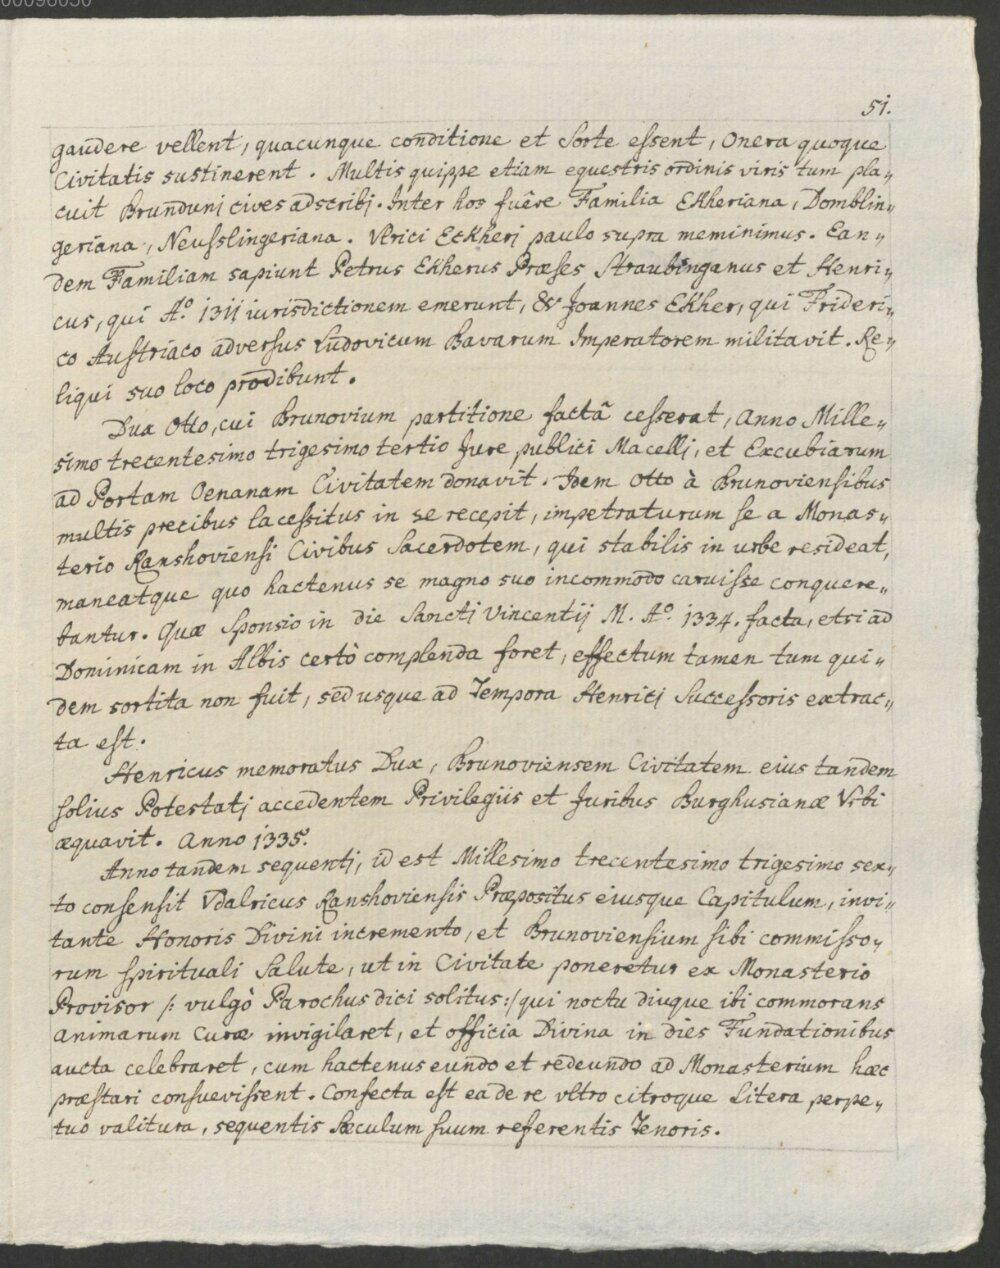 00096050
51.
gaudere vellent, quacunque conditione et Sorte essent, Onera quoque
Civitatis sustinerent. Multis quippe etiam equestris ordinis viris tum pla„
cuit Brunduni cives adscribi. Inter hos fuêre Familia Ekheriana, Domblin„
geriana, Neusslingeriana. Vlrici Eckheri paulo supra meminimus. Ean„
dem Familiam sapiunt Petrus Ekherus Præses Straubinganus et Henri„
cus, qui Aº 1311 iurisdictionem emerunt, & Joannes Ekher, qui Frideri„
co Austriaco adversus Ludovicum Bavarum Imperatorem militavit. Re„
liqui suo loco prodibunt.
Dux Otto, cui Brunovium partitione factâ cesserat, Anno Mille„
simo trecentesimo trigesimo tertio Jure publici Macelli, et Excubiarum
ad Portam Oenanam Civitatem donavit. Idem Otto à Brunoviensibus
multis precibus lacessitus in se recepit, impetraturum se a Monas„
terio Ranshoviensi Civibus Sacerdotem, qui stabilis in urbe resideat,
maneatque quo hactenus se magno suo incommodo caruisse conquere„
bantur. Quæ Sponsio in die Sancti Vincentij M. Aº 1334. facta, etsi ad
Dominicam in Albis certò complenda foret, effectum tamen tum qui„
dem sortita non fuit, sed usque ad Tempora Henrici Successoris extrac„
ta est.
Henricus memoratus Dux, Brunoviensem Civitatem eius tandem
solius Potestati accedentem Privilegiis et Juribus Burghusianæ Vrbi
æquavit. Anno 1335.
Anno tandem sequenti, id est Millesimo trecentesimo trigesimo sex„
to consensit Vdalricus Ranshoviensis Præpositus eiusque Capitulum, invi„
tante Honoris Divini incremento, et Brunoviensium sibi commisso„
rum spirituali Salute, ut in Civitate poneretur ex Monasterio
Provisor /: vulgò Parochus dici solitus :/ qui noctu diuque ibi commorans
Animarum Curæ invigilaret, et officia Divina in dies Fundationibus
aucta celebraret, cum hactenus eundo et redeundo ad Monasterium hæc
præstari consuevissent. Confecta est ea de re vltro citroque Litera perpe„
tuo valitura, sequentis Sæculum suum referentis Tenoris.